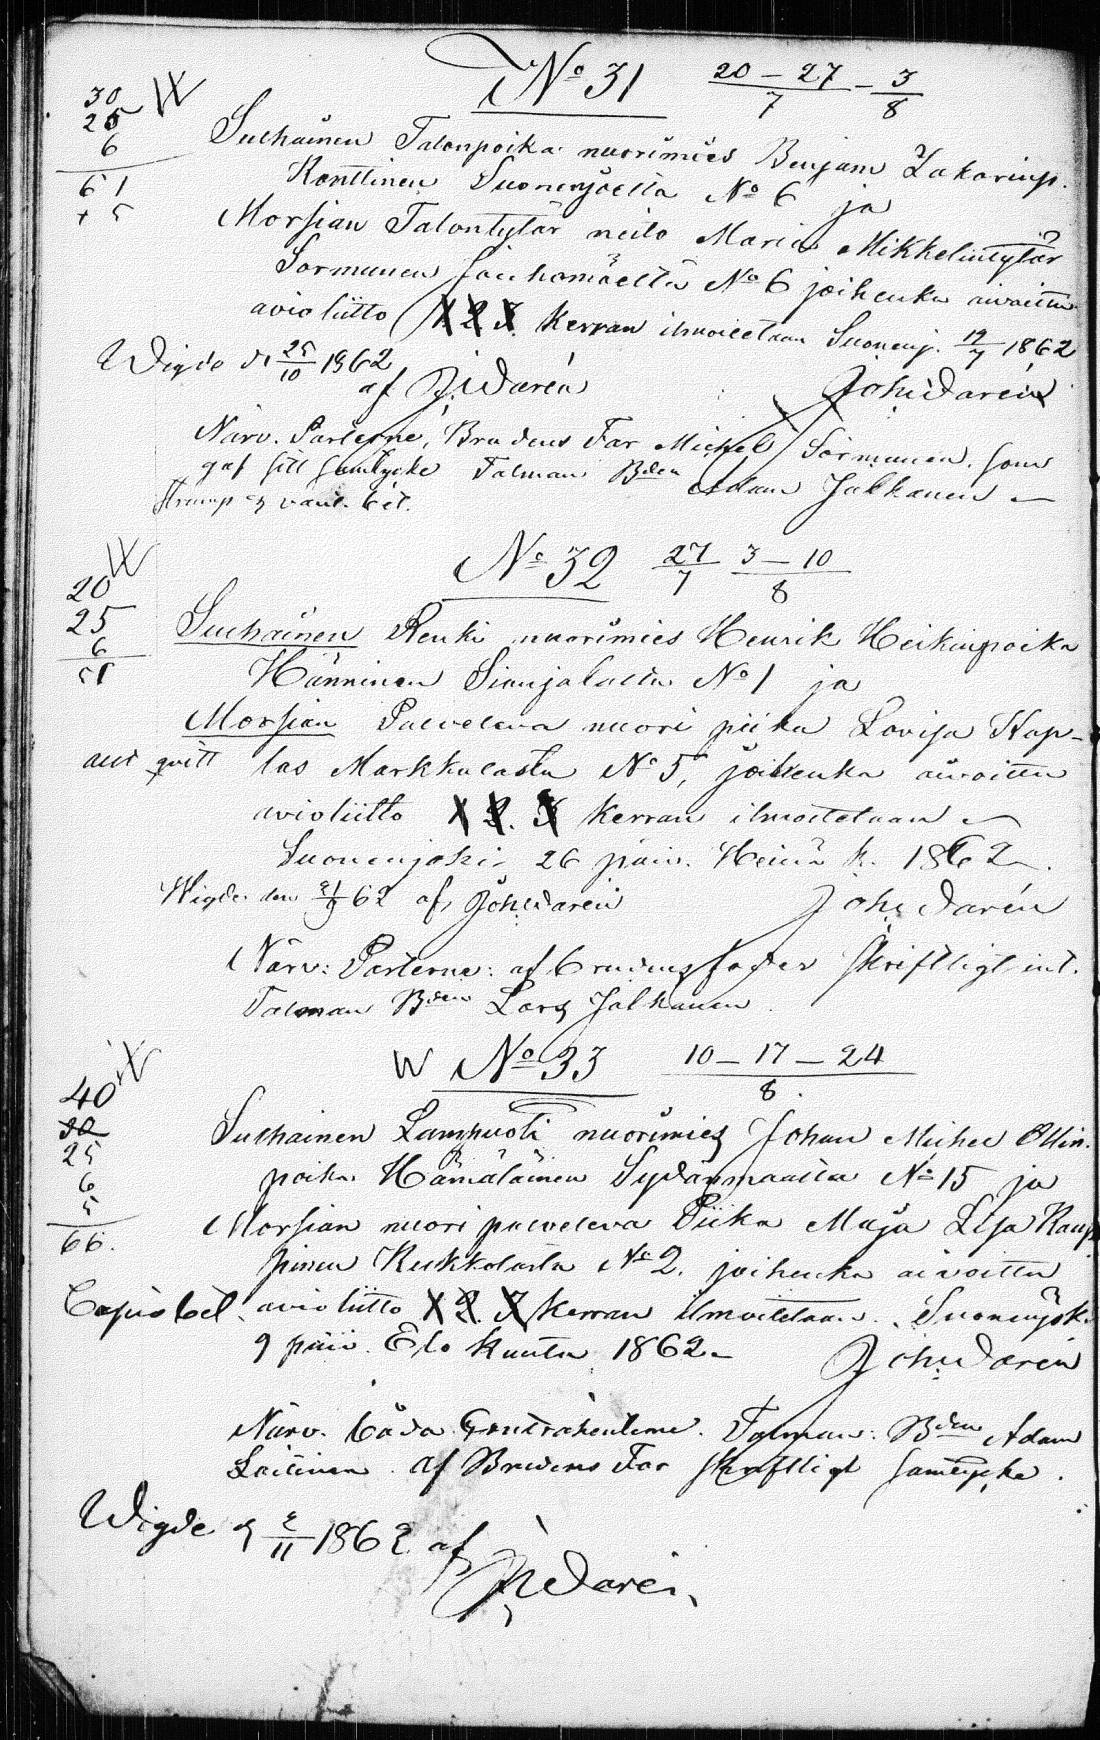 No 31 20 – 27 – 3
7 8
30
25
6
61
+ 5
Sulhainen Talonpoika nuorimies Benjam Zakarinp.
Konttinen Suonenjoelta No 6 ja
Morsian Talontytär neito Maria Mikkelintytär
Sormunen Jauhomäeltä No 6 joihenka aivoittu
avioliitto 1. 2. 3. Kerran ilmoitetaan Suonenj. 19/7 1862
Wigde d 25/10 1862
af Joh. Darén Joh. Darén
Närv. Parterne, Brudens Far Michel Sormunen, som
gaf sitt samtycke Talman Bden Adam Jalkanen
No 32 27 3 – 10
7 8
20
25
6
51
Sulhainen Renki nuorimies Henrik Heikinpoika
Hänninen Sianjalasta No 1 ja
Morsian Palveleva nuori piika Lovisa Kap-
las Markkalasta No 5, joihenka aivoittu
avioliitto 1. 2. 3. Kerran ilmoitetaan
Suonenjoki 26 päiv. Heinä k. 1862
Wigde den 21/9 62 af Joh. Darén Joh. Darén
Närv: Parterne: af Brudens fader skriftligt int.
Talman Bden Lars Jalkanen
No 33 10 – 17 – 24
8.
40
30
25
6
5
66.
Sulhainen Lampuoti nuorimies Johan Michel Ollin-
poika Hämäläinen Sydänmaalta No 15 ja
Morsian nuori palveleva Piika Maja Lisa Raup
pinen Kukkolasta No 2. joihenka aivoittu
Copia bet. avioliitto 1. 2. 3. Kerran ilmoitetaan. Suonenjoki
9 päiv. Elo Kuuta 1862 Joh. Darén
Närv. båda Contrahenterne. Talman: Bden Adam
Laitinen. af Brudens Far skriftligt samtycke.
Wigde d 2/11 1862 af
Joh. Darén